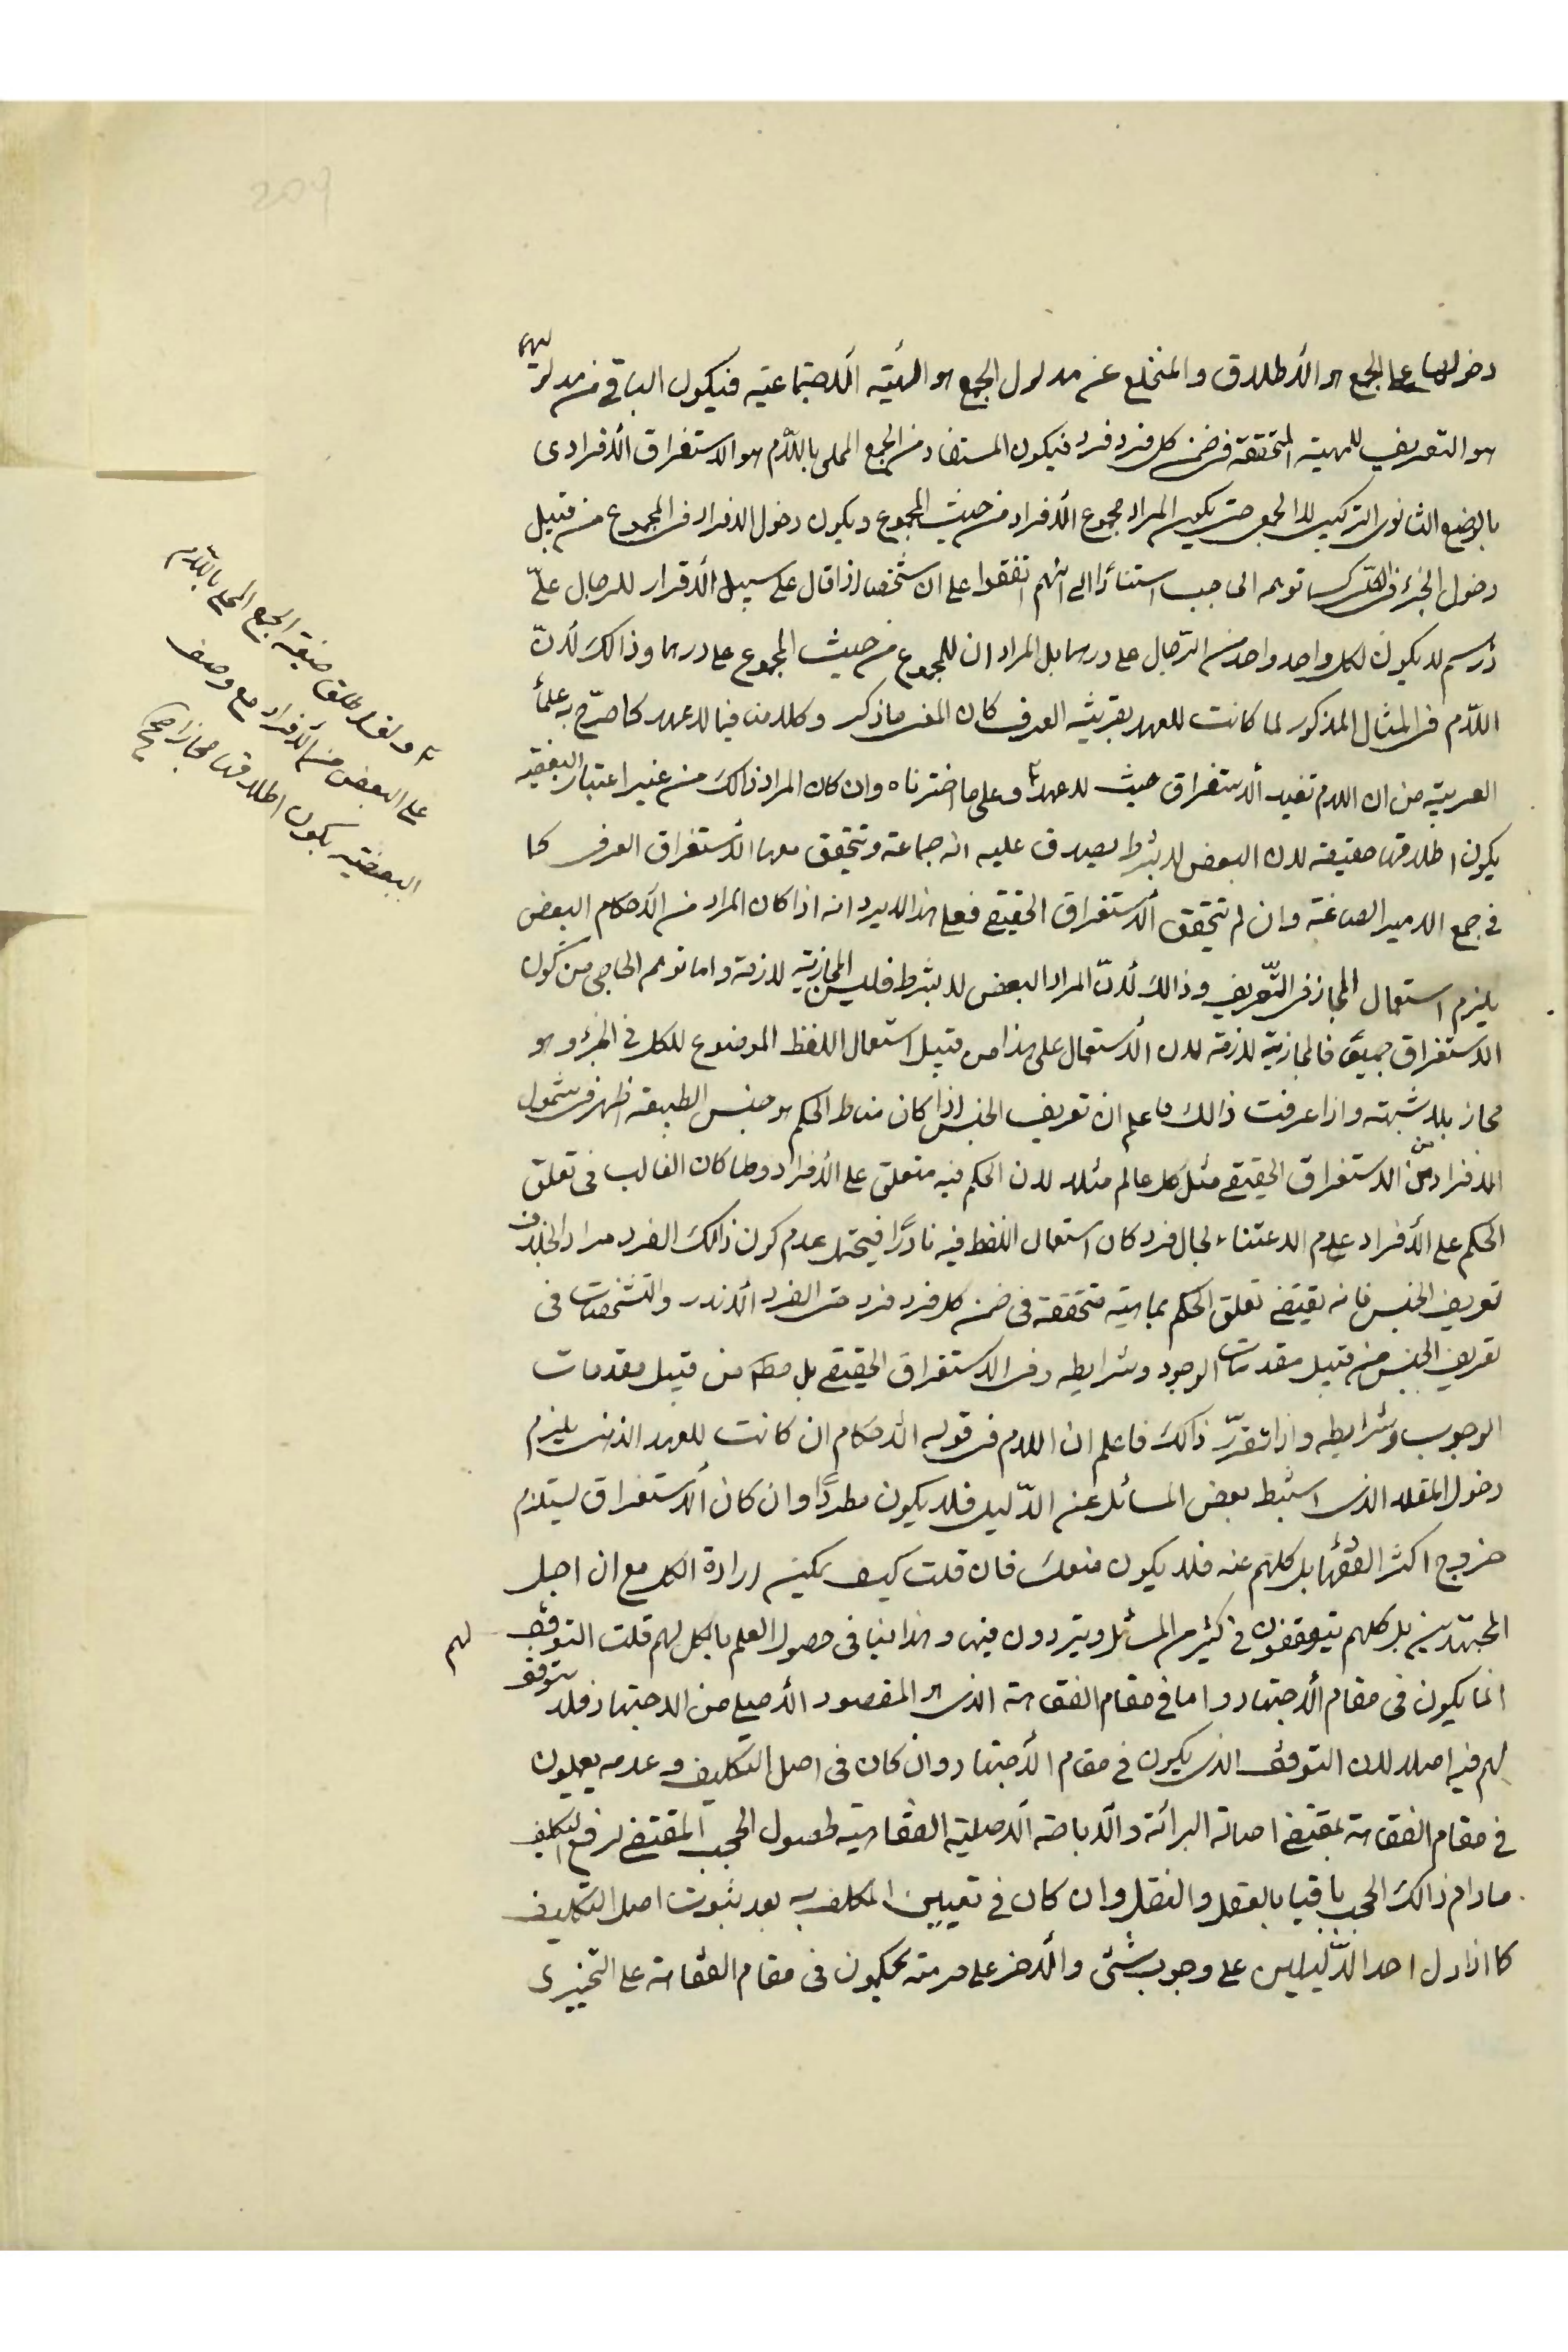 دخولها على الجمع هو الأطلاق والمنخلع عن مدلول الجمع هو الهيئة الأجتماعية فيكون الباقى من مدلوليهما
هو التعريف للمهية المتحققة فى ضمن كل فرد فرد فيكون المستفاد من الجمع المحلى باللّام هو الاستغراق الأفرادى
بالوضع الثانوى التركيبى لا الجمعى حتى يكون المراد مجموع الأفراد من حيث المجموع ويكون دخول الافراد فى المجموع من قبيل
دخول الجزء فى الكلّ كما توهمه الحاجبى استنادًا الى انّهم اتفقوا على ان شخصا اذا قال على سبيل الأقرار للرجال علىّ
درهم لا يكون لكل واحد واحد من الرّجال على درهما بل المراد ان للمجموع من حيث المجموع على درهما وذالك لأنّ
اللّام فى المثال المذكور لما كانت للعهد بقرينة العرف كان المعنى ما ذكر وكلامنا فيما لا عهد كما صرّح به علمأ
العربيّة من ان اللام تفيد ألاستغراق حيث لا عهد وعلى ما اخترناه وان كان المراد ذالك من غير اعتبار البعضية
يكون اطلاقها حقيقة لان البعض لا بشرط يصدق عليه انه جماعة وتتحقق معها الأستغراق العرفى كما
فى جمع الامير الصاغة وان لم تتحقق ألاستغراق الحقيقى فعلى هذا لا يرد انه اذا كان المراد من الأحكام البعض
يلزم استعمال المجاز فى التّعريف وذالك لأنّ المراد البعض لا بشرط فليس المجازية لازمة واما توهم الحاجبى من كون
الاستغراق جميعى فالمجازية لازمة لان الأستعمال على هذا من قبيل استعمال اللفظ الموضوع للكل فى الجزء وهو
مجاز بلا شبهة واذا عرفت ذالك فاعلم ان تعريف الجنس اذا كان مناط الحكم هو جنس الطبيعة اظهر فى شمول
الافراد من الاستغراق الحقيقى مثل كل عالم مثلا لان الحكم فيه متعلق على الأفراد ولما كان الغالب فى تعلق
الحكم على الأفراد عدم الاعتناء بحال فرد كان استعمال اللفظ فيه نادرًا فيحتمل عدم كون ذالك الفرد مراد الخلاف
تعريف الجنس فانه يقتضى تعلق الحكم بماهية متحققة فى ضمن كل فرد فرد حتى الفرد الأندر والتشخصات فى
تعريف الجنس من قبيل مقدمات الوجود وشرايطه وفى الاستغراق الحقيقى بل مط من قبيل مقدمات
الوجوب وشرايطه واذا تقرّر ذالك فاعلم ان اللام فى قوله الأحكام ان كانت للعهد الذهنى يلزم
دخول المقلد الذى استنبط بعض المسائل عن الدّليل فلا يكون مطردًا وان كان ألاستغراق يستلزم
خروج اكثر الفقهأ بل كلهم عنه فلا يكون منعكسا فان قلت كيف يمكن ارادة الكل مع ان اجل
المجتهدين بل كلهم يتوقفون فى كثير من المسائل ويترددون فيها وهذا ينافى حصول العلم بالكل لهم قلت التوقف لهم
انما يكون فى مقام ألاجتهاد واما فى مقام الفقاهة الذى هو المقصود الأصلى من الاجتهاد فلا توقف
لهم فيه اصلا لان التوقف الذى يكون فى مقام ألاجتهاد وان كان فى اصل التكليف وعدمه يعملون
فى مقام الفقاهة بمقتضى اصالة البرائة وألاباحة ألاصلية الفقاهتية لحصول الحجب المقتضى لرفع التكليف
مادام ذالك الحجب باقيا بالعقل والنقل وان كان فى تعيين المكلف به بعد ثبوت اصل التكليف
كما اذا دل احد الدّليلين على وجوب شئى وألاخر على حرمته يحكمون فى مقام الفقاهة على التخييرى
ولفظ طلق صيغة الجمع المحلى باللّام
على البعض من الأفراد مع وصف
البعضية يكون اطلاقها مجازا صح
209